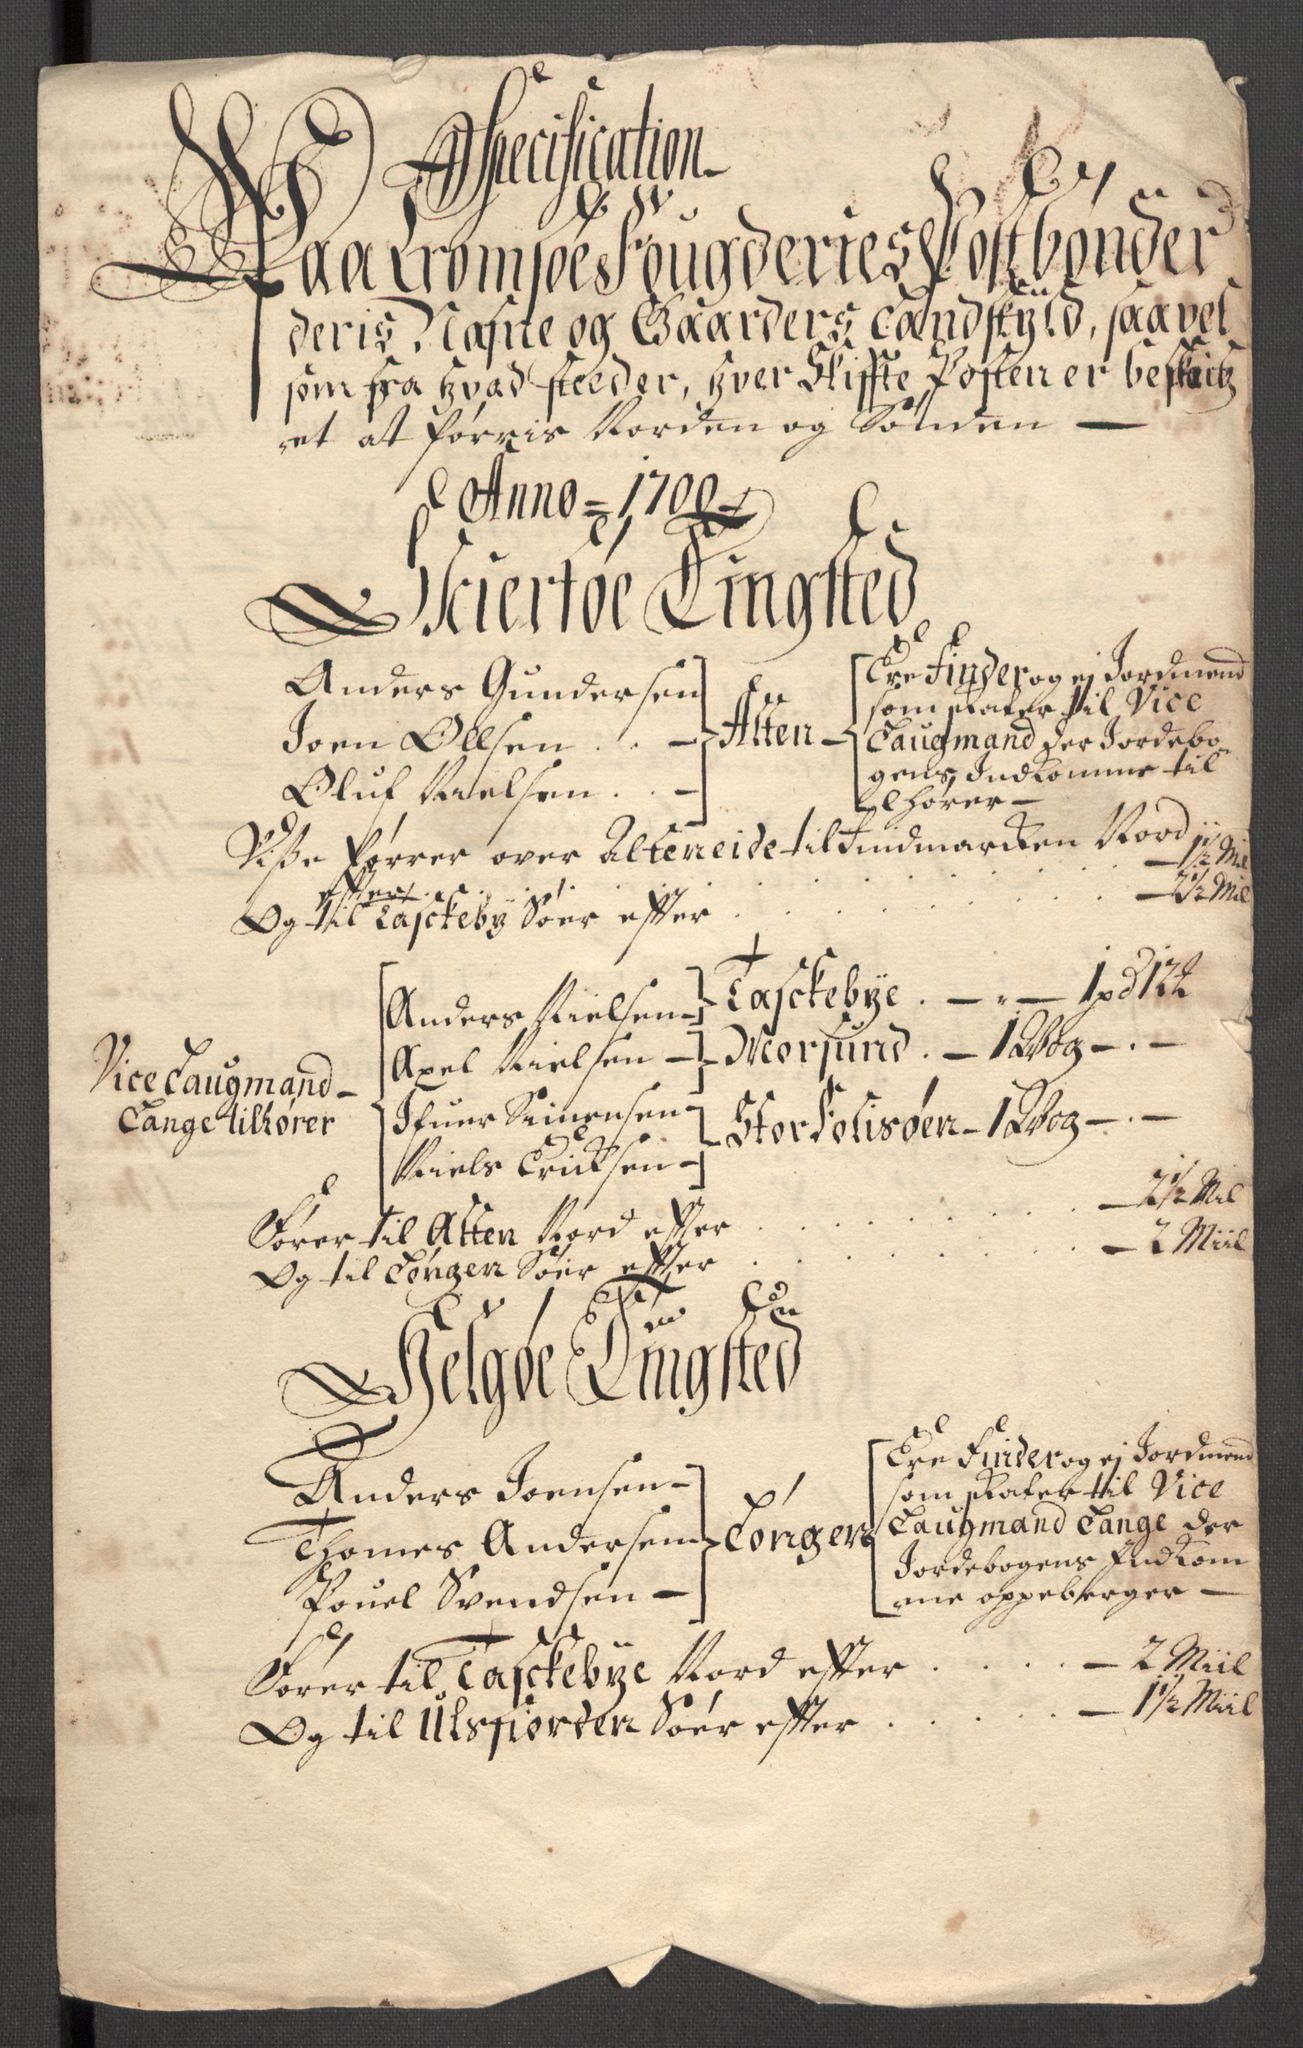 Specification
Paa Tromsøes Fougderies Postbønder
deris Nafne og Gaarders Landskyld, saavel
som fra hvad steder, hver Skiffte Posten er beskick
et at førris Norden og Sønden —
Anno = 1700
Skiertøe Tingsted
Anders Gundersen
Joen Ollsen . . —
Oluf Nielsen . . —
Alten —
Ere Finder og ej Jordmend
som skater til Vice
Laugmand der Jordebo-
gens Indkomme til
hører —
Disse førrer over Alteneide til Findmarcken Nord
efter . . . . — 1½ Mil
Og til Laschebÿ Söer efter . . . . — 2½ Mil
Vice Laugmand
Lange tilhører
Anders Nielsen — Laschebye . — " — 1 pd 12 ℔
Axel Nielsen — Morsund . — 1 Wog — . —
Ifuer Simensen —
Niels Ericksen —
Stor Folisøen — 1 Wog — . —
Fører til Alten Nord efter . . . . — 2½ Mil
Og til Löngen Söer efter . . . . — 2 Miil
Helgøe Tingsted
Anders Joensen —
Thomes Andersen
Pouel Svendsen —
Löngen
Ere Finder og ej Jordmend
som skater til Vice
Laugmand Lange der
Jordebogens Indkom
me oppeberger —
Fører til Laschebye Nord efter . . . . — 2 Miil
Og til Ulsfiorden Söer efter . . . . — 1½ Miil